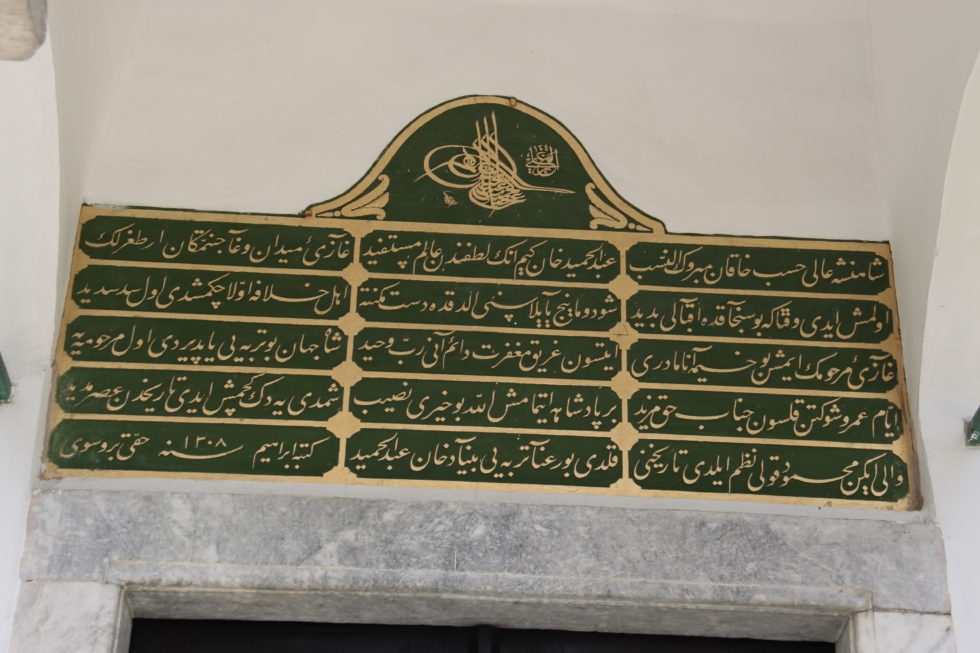 شاهنشه عالی حسب خاقان النسب عبدالحمید خان كیم انك لطفندن عالم مستفید غازئ میدان وغا جنتمكان ارطغرلك
اولمش ایدی وقتا كه بو سنجاقده اقبالی بدید شو دومانیج یایلاسنی الده دست مكنته اهل خلافه اولا چكمشدی اول سد سدید
غازئ مرحومك ایمش بو خیمه آنا مادری ایتسون غریق مغفرت دائم آنی رب وحید شاه جهان بو تربه یی یاپدیردی اول مرحومیه
ایام عمر و شوكتن قلسون جناب حق مزید بر پادشاهه ایتمامش الله بو خیری نصیب شمدی یه دك كچمش ایدی تاریخدن عصر مدید
والی ایكن محمود قولی نظم ایلدی تاریخنی قلدی بو رعنا تربه یی بنیاد خان عبدالحمید كتبه ابراهیم حقی بروسوی سنه ١٣٠٨